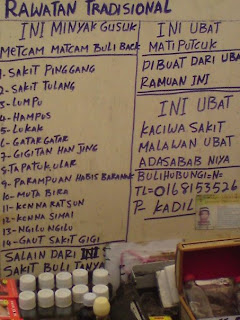 RAWATAN TRADISIONAL
INI MINYAK GUSUK
METCAM MATCAM BULI BACK
1-SAKIT PINGGANG
2-SAKIT TULANG
3-LUMPU
4-HAMPUS
5-LUKAK
6-GATAR GATAR
7-GIGITAN HANJING
8-TAPATOK, ULAR
9-PARAMPUAN HABIS BARANAK
10-MUTA BIRA
11-KENNA RATSUN
12-KENNA SIHAI
13-NGILU NGILU
14-GAUT SAKIT GIGI
SALAIN DARI INI
SAKIT BULI TANYA
INI UBAT
MATI PUTCUK
DIBUAT DARI UBA
RAMUAN INI
INI UBAT
KACIWA SAKIT
MALAWAN UBAT
ADASABAB NIYA
BULIHUBUNGI=N=
TL=0168153526
P. KADIL